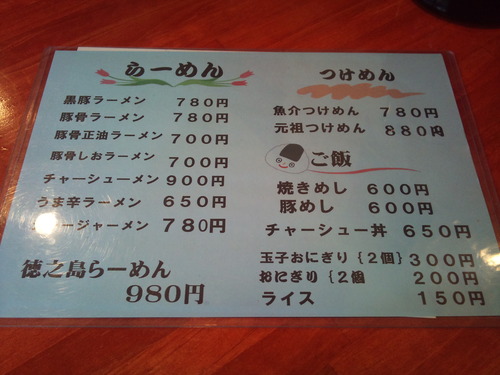 らーめん
黒豚ラーメン 780円
豚骨ラーメン 780円
豚骨正油ラーメン 700円
豚骨しおラーメン 700円
チャーシューメン 900円
うま辛ラーメン 650円
ージャーメン 780円
徳之島らーめん
980円
つけめん
魚介つけめん 780円
元祖つけめん 880円
ご飯
焼きめし 600円
豚めし 600円
チャーシュー丼 650円
玉子おにぎり{2個} 300円
おにぎり{2個 200円
ライス 150円